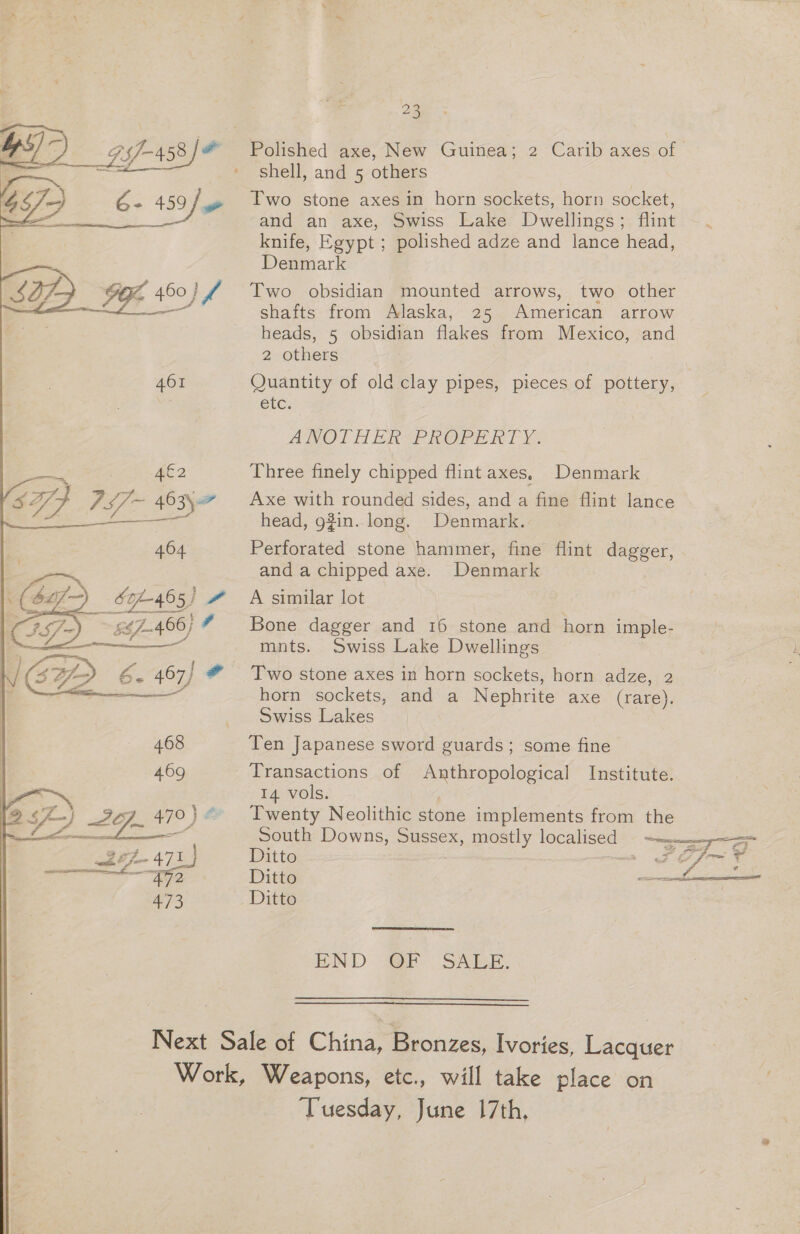 23
458 Polished axe, New Guinea; 2 Carib axes of
shell, and 5 others
6- 459 Two stone axes in horn sockets, horn socket,
and an axe, Swiss Lake Dwellings; flint
knife, Egypt; polished adze and lance head,
Denmark
460 Two obsidian mounted arrows, two other
shafts from Alaska, 25 American arrow
heads, 5 obsidian flakes from Mexico, and
2 others
461 Quantity of old clay pipes, pieces of pottery,
etc.
ANOTHER PROPERTY.
462 Three finely chipped flint axes, Denmark
463 Axe with rounded sides, and a fine flint lance
head, 9¾in. long. Denmark.
464 Perforated stone hammer, fine flint dagger,
and a chipped axe. Denmark
465 A similar lot
466 Bone dagger and 16 stone and horn imple-
mnts. Swiss Lake Dwellings
6. 467 Two stone axes in horn sockets, horn adze, 2
horn sockets, and a Nephrite axe (rare).
Swiss Lakes
468 Ten Japanese sword guards; some fine
469 Transactions of Anthropological Institute.
14 vols.
470 Twenty Neolithic stone implements from the
South Downs, Sussex, mostly localised
471 Ditto
472 Ditto
473 Ditto
END OF SALE.
Next Sale of China, Bronzes, Ivories, Lacquer
Work, Weapons, etc., will take place on
Tuesday, June 17th.